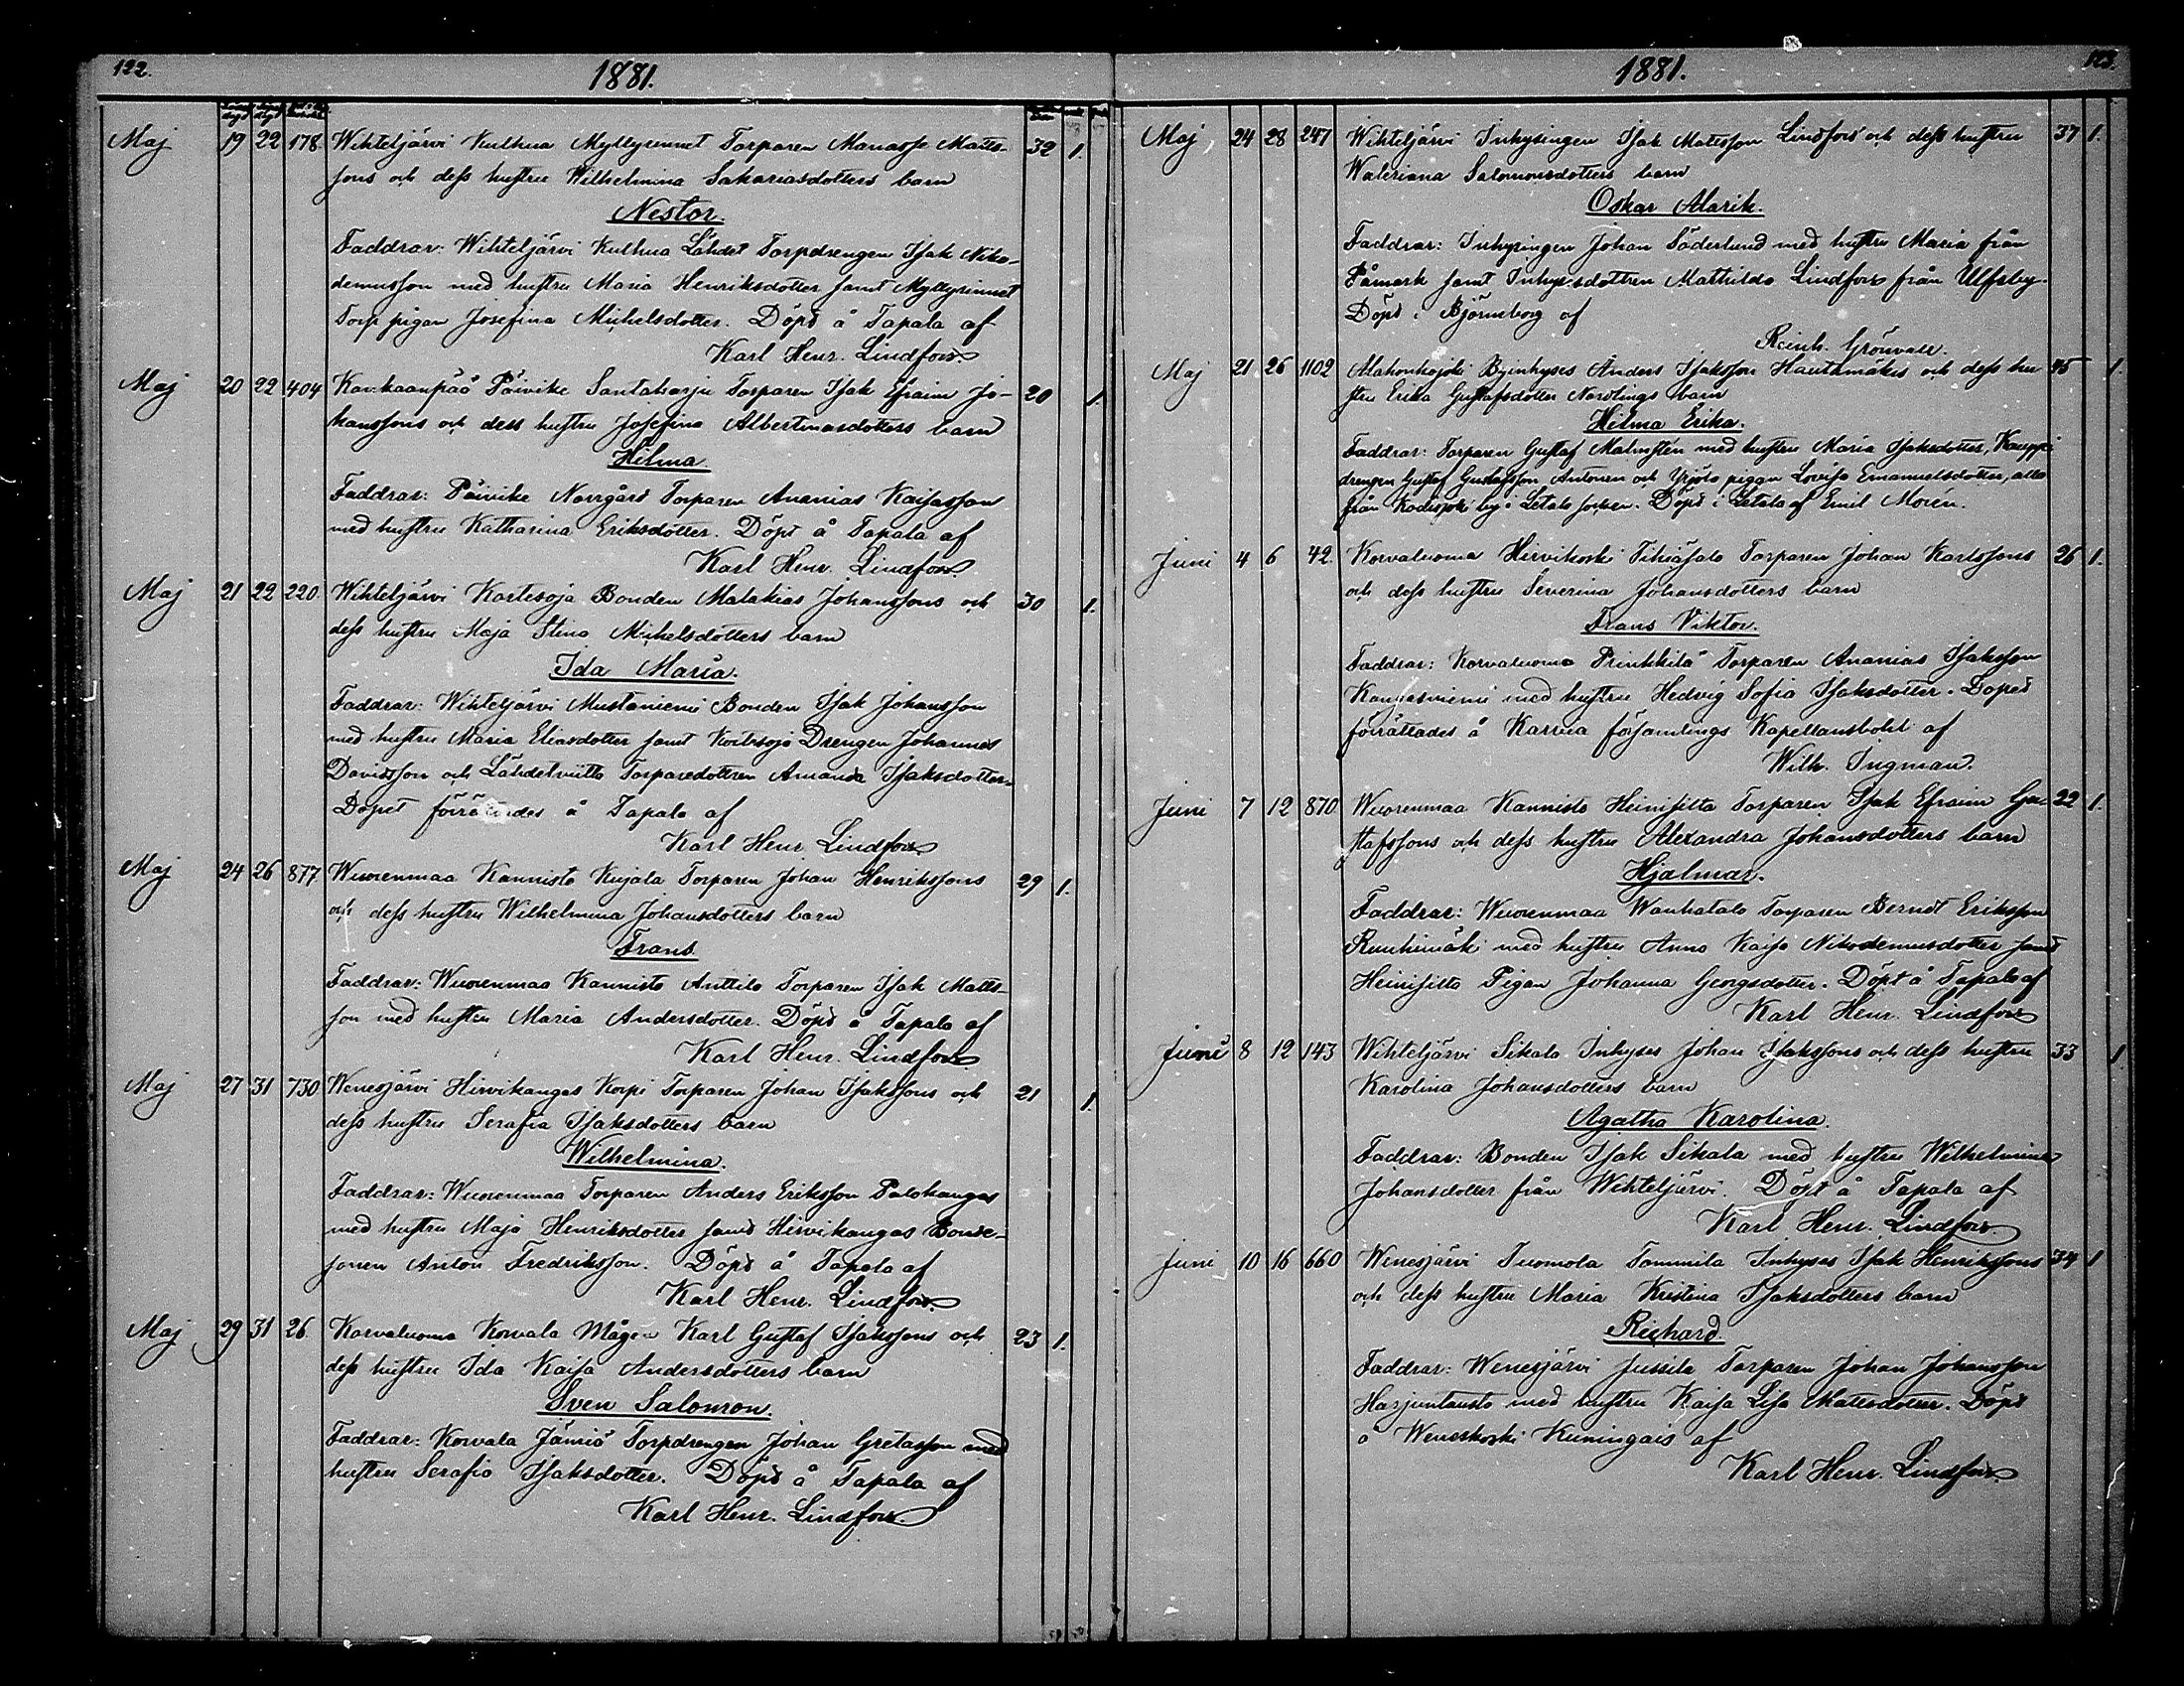 122.
1881.
Maj 19 22 178 Wihteljärvi Kulhua Myllyrinnet Torparen Manasse Matts- 32 1.
sons och dess hustru Wilhelmina Sakariasdotters barn
Nestor.
Faddrar: Wihteljärvi Kulhua Lähdet Torpdrengen Isak Niko-
demusson med hustru Maria Henriksdotter samt Myllyrinnet
Torp pigan Josefina Michelsdotter. Döpt å Tapala af
Karl Henr. Lindfors.
Maj 20 22 404 Kankaanpää Päivike Santaharju Torparen Isak Efraim Jo- 20 1.
hanssons och dess hustru Josefina Albertinasdotters barn
Hilma
Faddrar: Päivike Norrgård Torparen Ananias Kaisasson
med hustru Katharina Eriksdotter. Döpt å Tapala af
Karl Henr. Lindfors.
Maj 21 22 220. Wihteljärvi Kortesoja Bonden Malakias Johanssons och 30 1.
dess hustru Maja Stina Michelsdotters barn
Ida Maria.
Faddrar: Wihteljärvi Mustaniemi Bonden Isak Johansson
med hustru Maria Eliasdotter samt Kortesoja Drengen Johannes
Davidsson och Lähdelniitto Torparedottren Amanda Isaksdotter.
Dopet förrättades å Tapala af
Karl Henr. Lindfors
Maj 24 26 877 Wuorenmaa Kannisto Kujala Torparen Johan Henrikssons 29 1.
och dess hustru Wilhelmina Johansdotters barn
Frans.
Faddrar: Wuorenmaa Kannisto Anttila Torparen Isak Matts-
son med hustru Maria Andersdotter. Döpt å Tapala af
Karl Henr. Lindfors
Maj 27 31 730 Wenesjärvi Hirvikangas Korpi Torparen Johan Isakssons och 21 1.
dess hustru Serafia Isaksdotters barn
Wilhelmina.
Faddrar: Wuorenmaa Torparen Anders Eriksson Palokangas
med hustru Maja Henriksdotter samt Hirvikangas Bonde-
sonen Anton Fredriksson. Döpt å Tapala af
Karl Henr. Lindfors.
Maj 29 31 26. Karvaluoma Korvala Mågen Karl Gustaf Isakssons och 23 1.
dess hustru Ida Kaisa Andersdotters barn
Sven Salomon.
Faddrar: Korvala Jämiä Torpdrengen Johan Gretasson med
hustru Serafia Isaksdotter. Döpt å Tapala af
Karl Henr. Lindfors.
1881.
123.
Maj 24 28 247 Wihteljärvi Inhysingen Isak Matsson Lindfors och dess hustru 37 1.
Waleriana Salomonsdotters barn
Oskar Alarik.
Faddrar: Inhysingen Johan Söderlund med hustru Maria från
Påmark samt Inhysesdottren Mathilda Lindfors från Ulfsby.
Döpt i Björneborg af
Reinh. Grönvall.
Maj 21 26 1102 Byinhyses Anders Isaksson Hautamäkis och dess hu- 45 1.
stru Erika Gustafsdotter Nordlings barn
Hilma Erika.
Faddrar: Torparen Gustaf Malmstén med hustru Maria Isaksdotter, Kauppi
drengen Gustaf Gustafsson Antonen och Yrjölä pigan Lovisa Emanuelsdotter, alla
från Kodisjoki by i Letala socken. Döpt i Letala af Emil Morén.
Juni 4 6 42. Korvaluoma Hirvikoski Torparen Johan Karlssons 26 1.
och dess hustru Severina Johansdotters barn
Frans Viktor.
Faddrar: Korvaluoma Prinkkilä Torparen Ananias Isaksson
Kangasniemi med hustru Hedvig Sofia Isaksdotter. Dopet
förrättades å Karvia församlings Kapellansbohl af
Wilh. Ingman.
Juni 7 12 870 Wuorenmaa Kannisto Heinisitta Torparen Isak Efraim Gu- 22 1.
stafssons och dess hustru Alexandra Johansdotters barn
Hjalmar.
Faddrar: Wuorenmaa Wanhatalo Torparen Berndt Eriksson
Ruuhimäki med hustru Anna Kaisa Nikodemusdotter samt
Heinisitta Pigan Johanna Georgsdotter. Döpt å Tapala af
Karl Henr. Lindfors
Juni 8 12 143 Wihteljärvi Sikala Inhyses Johan Isakssons och dess hustru 33 1
Karolina Johansdotters barn
Agatha Karolina.
Faddrar: Bonden Isak Sikala med hustru Wilhelmina
Johansdotter från Wihteljärvi. Döpt å Tapala af
Karl Henr. Lindfors.
Juni 10 16 660 Wenesjärvi Tuomola Tommila Inhyses Isak Henrikssons 34 1
och dess hustru Maria Kristina Isaksdotters barn
Richard.
Faddrar: Wenesjärvi Jussila Torparen Johan Johansson
Harjuntausto med hustru Kaisa Lisa Mattsdotter. Döpt
å Weneskoski Kuningais af
Karl Henr. Lindfors